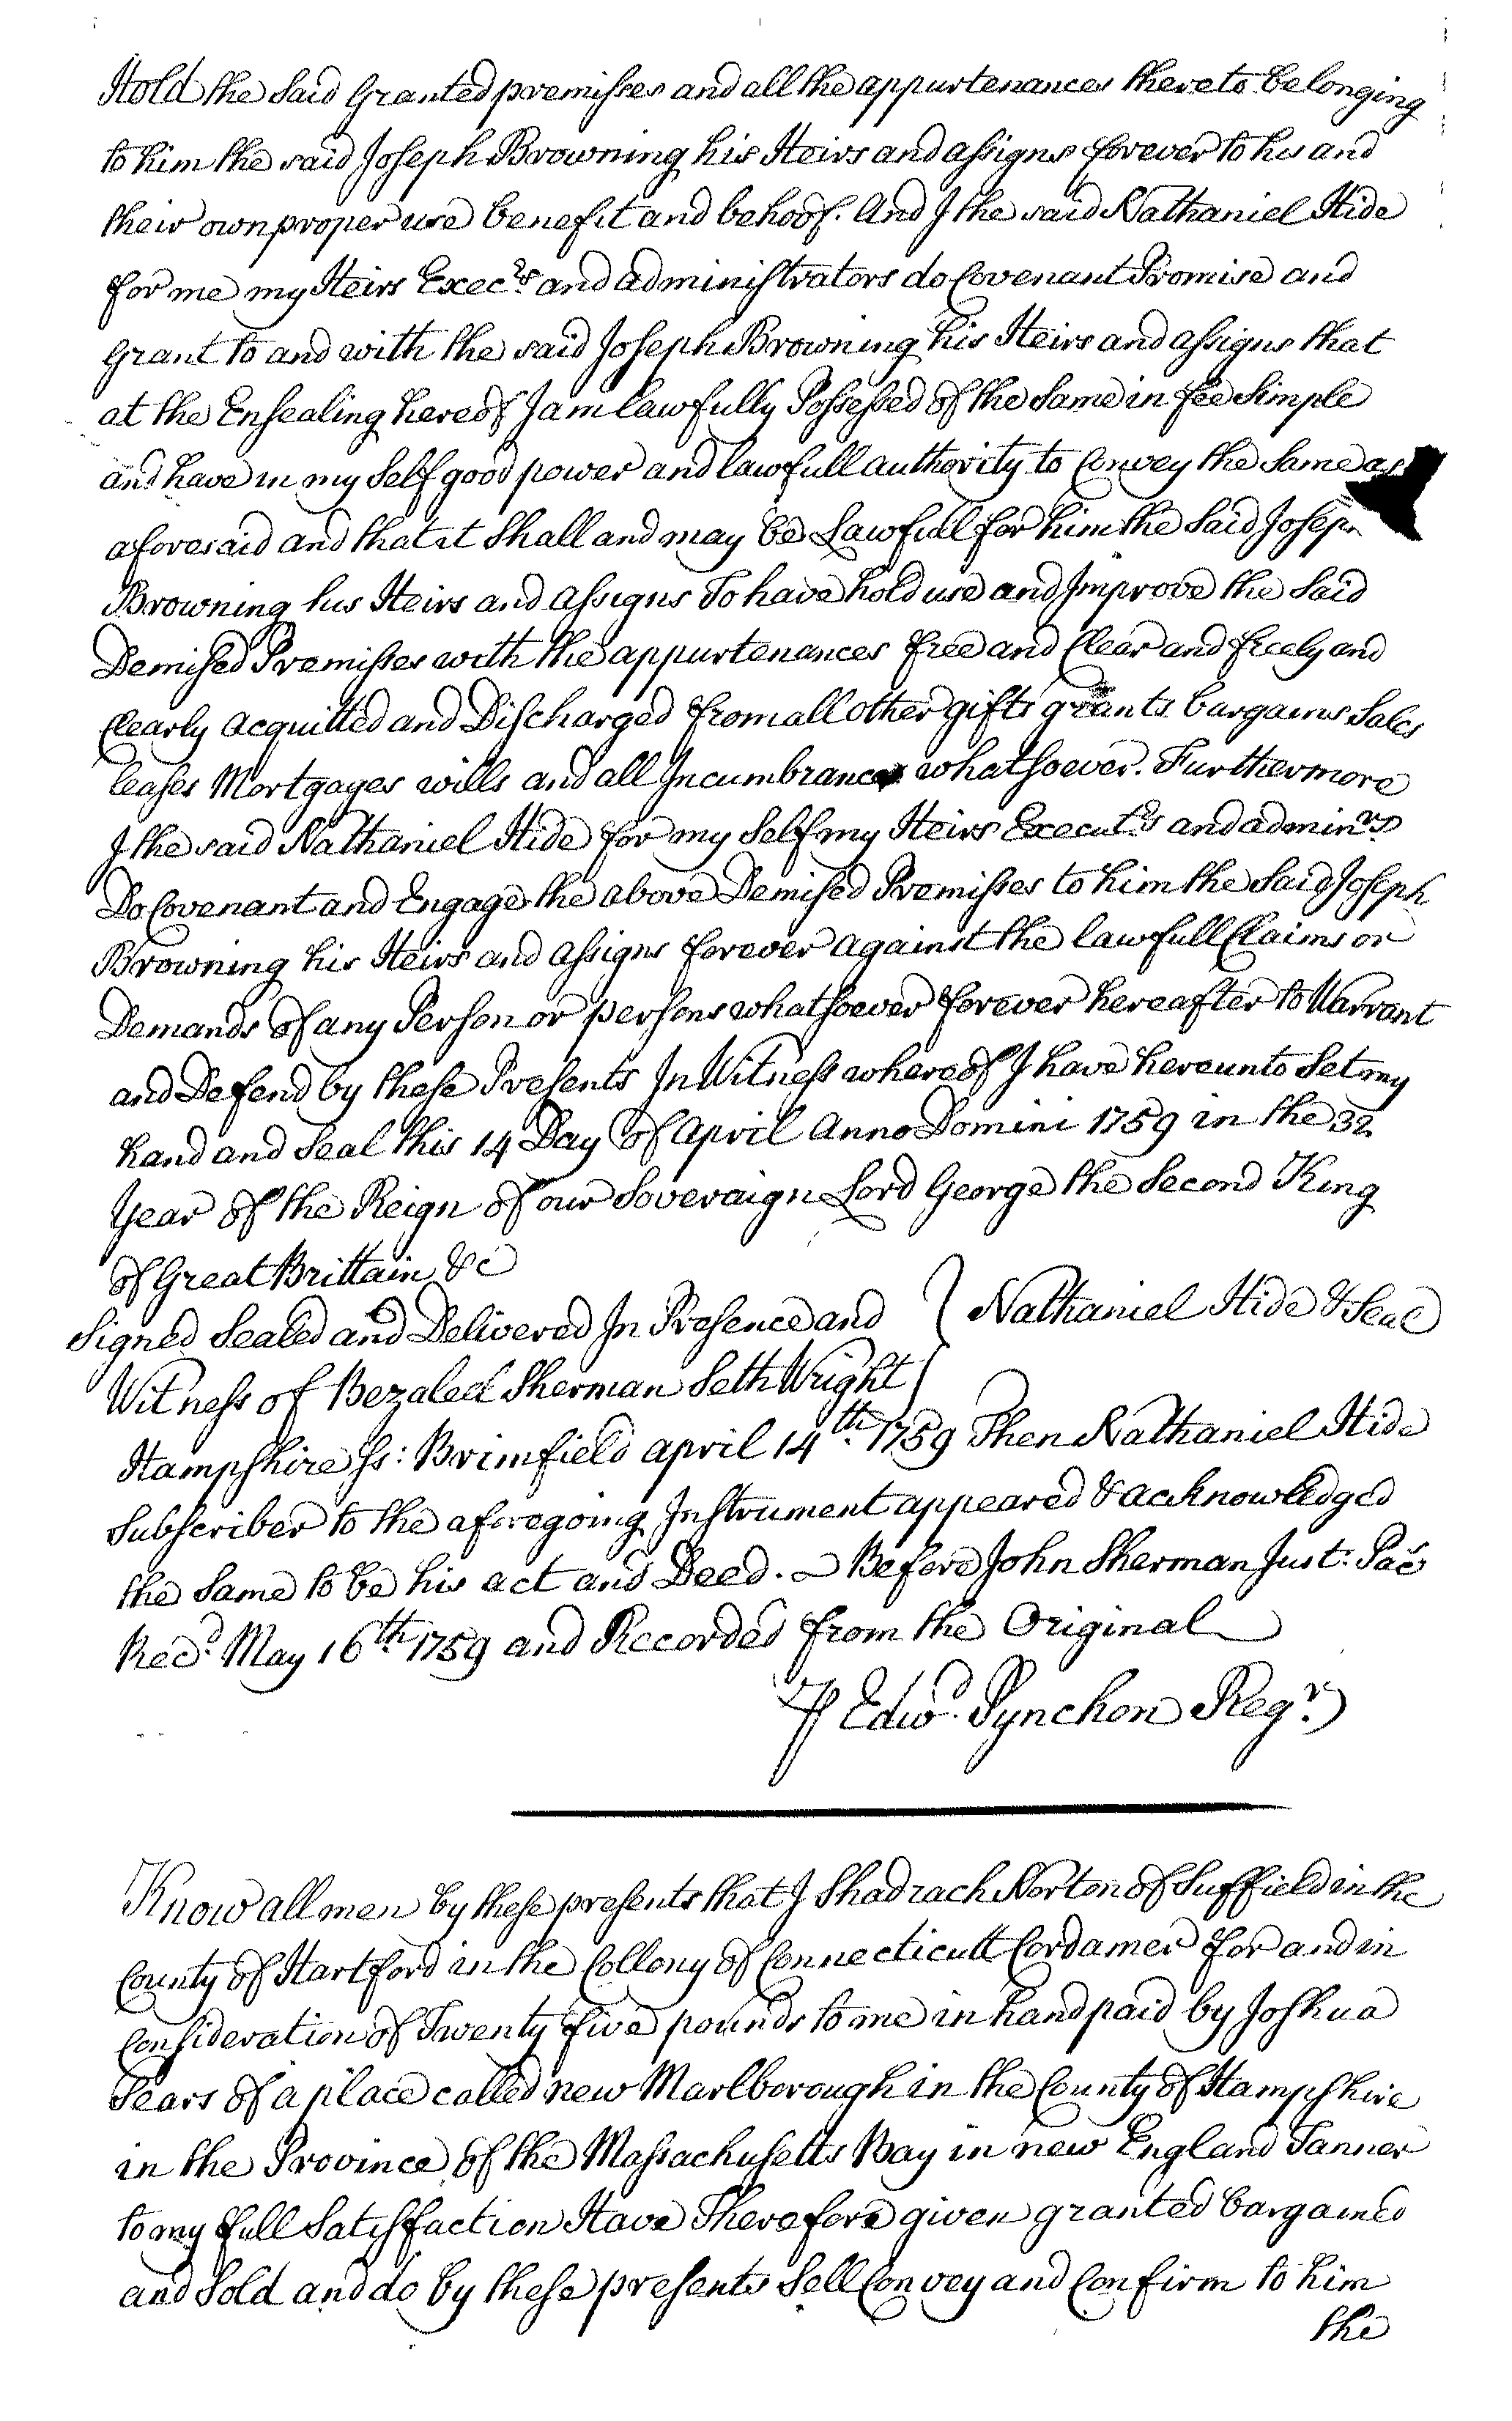 Hold the Said Granted premisses and all the appurtenances thereto belonging
to him the said Joseph Browning his Heirs and assigns forever to his and
their own proper use benefit and behoof. And I the said Nathaniel Hide
for me my Heirs Execrs and administrators do Covenant Promise and
Grant to and with the said Joseph Browning his Heirs and assigns that
at the Ensealing hereof I am lawfully Possessed of the Same in fee Simple
and have in my Self good power and lawfull authority to Convey the Same as
aforesaid and that it Shall and may be Lawfull for him the Said Joseph
Browning his Heirs and assigns To have hold use and Improve the Said
Demised Premisses with the appurtenances free and Clear and freely and
Clearly acquitted and Discharged from all other gifts grants bargains Sales
leases Mortgages wills and all Incumbrances whatsoever. Furthermore
I the said Nathaniel Hide for my Self my Heirs Executrs and adminrs
Do Covenant and Engage the above Demised Premisses to him the Said Joseph
Browning his Heirs and assigns forever against the lawfull Claims or
Demands of any Person or persons whatsoever forever hereafter to Warrant
and Defend by these Presents In Witness whereof I have hereunto Set my
hand and Seal this 14 Day of April Anno Domini 1759 in the 32
Year of the Reign of our Soveraign Lord George the Second King
of Great Brittain &c
Signed Sealed and Delivered In Presence and } Nathaniel Hide & Seal
Witness of Bezaleel Sherman Seth Wright
Hampshire Ss: Brimfield april 14th. 1759 Then Nathaniel Hide
Subscriber to the aforegoing Instrument appeared & acknowledged
the Same to be his act and Deed. - Before John Sherman Just: Pac
Recd. May 16th 1759 and Recorded from the Original
P Edwd. Pynchon Regr.
Know all men by these presents that I Shadrach Norton of Suffield in the
County of Hartford in the Collony of Connecticutt Cordamer for and in
Consideration of Twenty five pounds to me in hand paid by Joshua
Sears of a place called new Marlborough in the County of Hampshire
in the Province of the Massachusetts Bay in new England Tanner
to my full Satisfaction Have Therefore given granted bargained
and Sold and do by these presents Sell Convey and Confirm to him
the